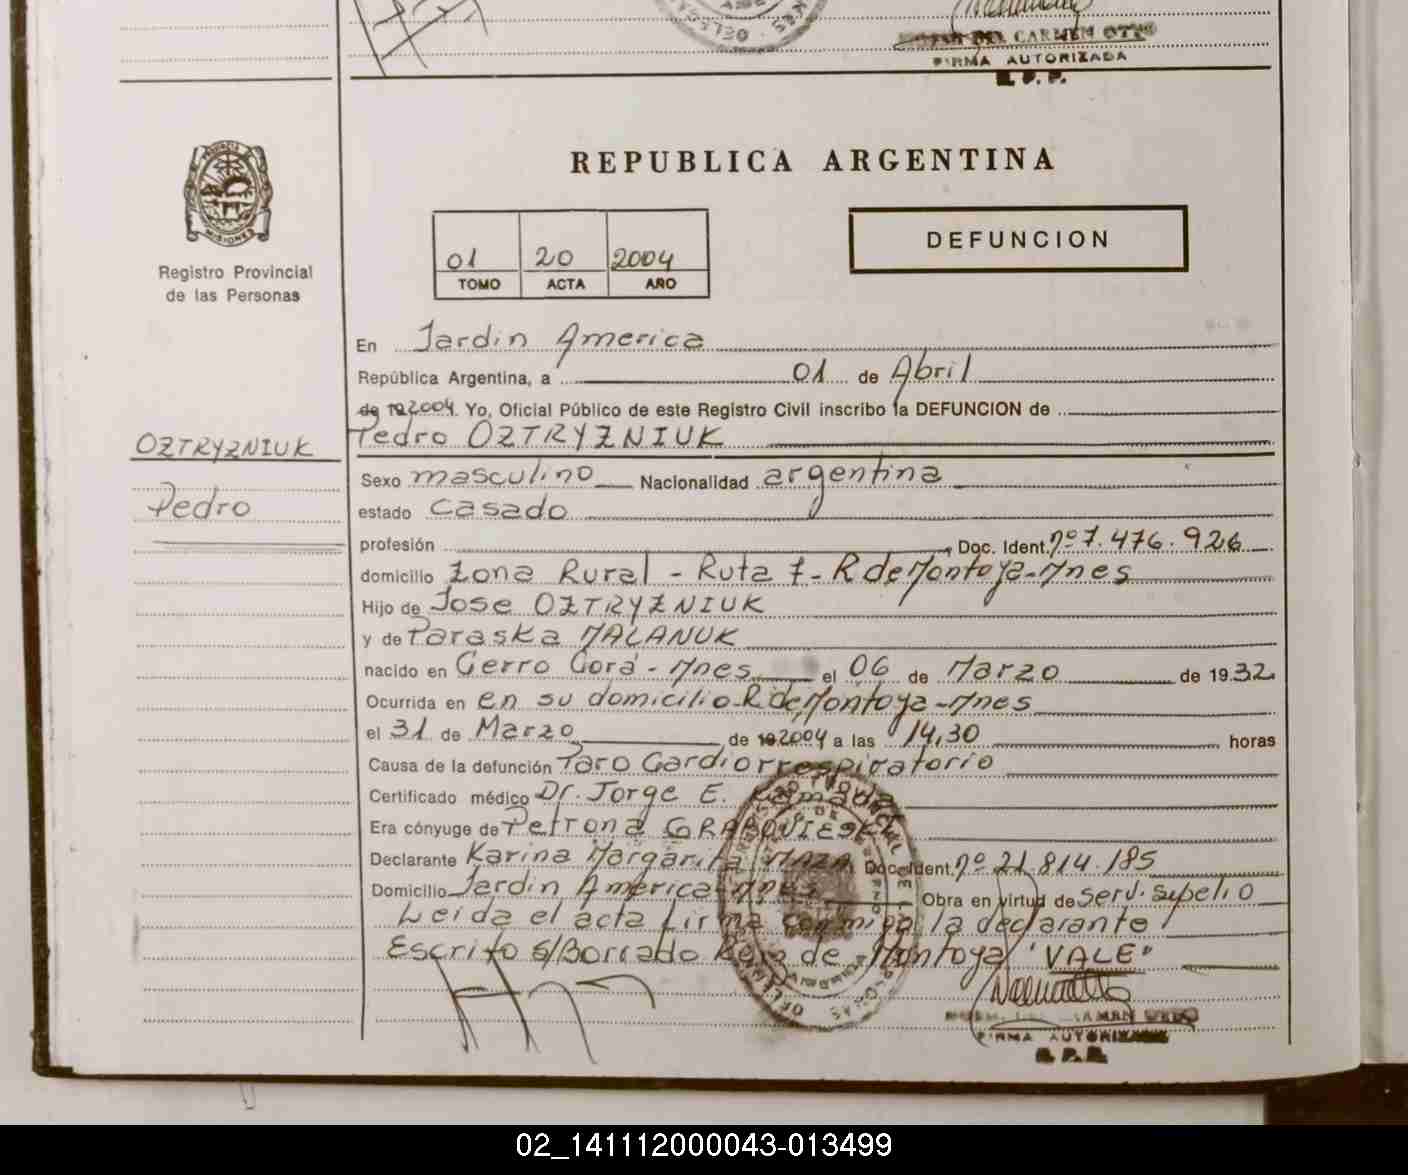 DEL CARMEN OTTO
FIRMA AUTORIZADA
R. P. P.
PROVINCIA DE
MISIONES
Registro Provincial
de las Personas
REPUBLICA ARGENTINA
01 20 2004
TOMO ACTA AÑO
DEFUNCION
En Jardin America
República Argentina, a 01 de Abril
de 19 2004. Yo, Oficial Público de este Registro Civil inscribo la DEFUNCION de
Pedro OZTRYZNIUK
OZTRYZNIUK
Pedro
Sexo masculino Nacionalidad argentina
estado Casado
profesión Doc. Ident. nº 7.476.926
domicilio Zona Rural - Ruta 7 - R de Montoya - Mnes
Hijo de Jose OZTRYZNIUK
y de Paraska MALANUK
nacido en Cerro Corá - Mnes el 06 de Marzo de 1932
Ocurrida en en su domicilio R de Montoya - Mnes
el 31 de Marzo de 19 2004 a las 14,30 horas
Causa de la defunción Paro Cardiorrespiratorio
Certificado médico Dr. Jorge E.
Era cónyuge de Petrona GRABOVIESKI
Declarante Karina Margarita MAZA Doc. Ident. nº 21.814.185
Domicilio Jardin America - Mnes Obra en virtud de Serv. Sepelio
Leida el acta firma conmigo la declarante
Escrito s/Borrado Ruiz de Montoya "VALE"
FIRMA AUTORIZADA
R. P. P.
02_141112000043-013499